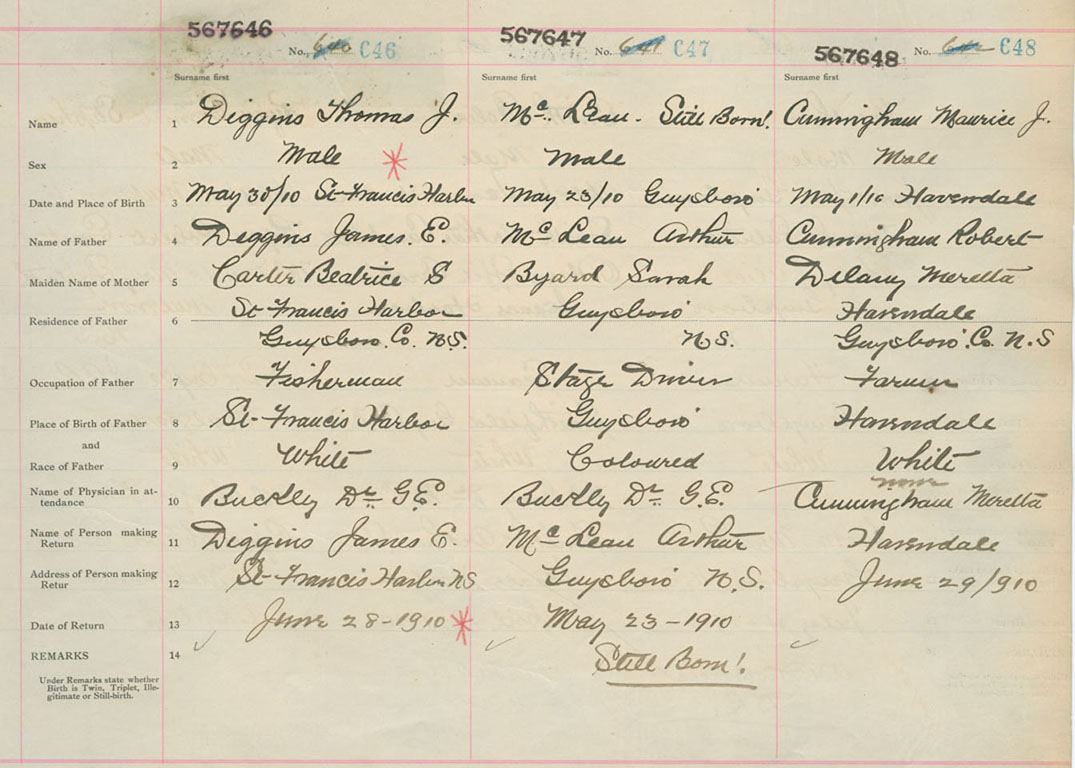 567646 567647 567648
No. 640 C46 No. 641 C47 No. 642 C48
Surname first Surname first Surname first
Name 1 Diggins Thomas J. Mc. Lean - Still Born! Cunningham Maurice J.
Sex 2 Male * Male Male
Date and Place of Birth 3 May 30/10 St Francis Harbor May 23/10 Guysboro' May 1/10 Havendale
Name of Father 4 Diggins James. E. Mc Lean Arthur Cunningham Robert
Maiden Name of Mother 5 Carter Beatrice S Byard Sarah Delany Moretta
Residence of Father 6 St Francis Harbor Guysboro' Havendale
Guysboro. Co. N.S. N.S. Guysboro'. Co. N.S
Occupation of Father 7 Fisherman Stage Driver Farmer
Place of Birth of Father 8 St-Francis Harbor Guysboro' Havendale
and
Race of Father 9 White Coloured White
none
Name of Physician in at-
tendance 10 Buckley Dr. G.E. Buckley Dr. G.E. Cunningham Moretta
Name of Person making
Return 11 Diggins James E. Mc Lean Arthur Havendale
Address of Person making
Retur 12 St-Francis Harbor N.S Guysboro' N.S. June 29/910
Date of Return 13 June 28-1910 * May 23-1910
REMARKS 14 Still Born!
Under Remarks state whether
Birth is Twin, Triplet, Ille-
gitimate or Still-birth.